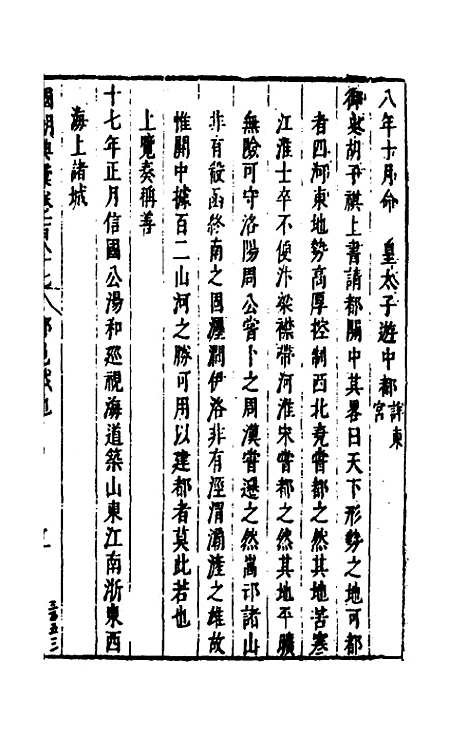 八年十月命　皇太子遊中都詳東宮
御史胡子祺上書請都關中其畧曰天下形勢之地可都
者四河東地勢高厚控制西北堯嘗都之然其地苦寒
江淮士卒不便汴梁襟帶河淮宋嘗都之然其地平曠
無險可守洛陽周公嘗卜之周漢嘗遷之然嵩邙諸山
非有殽函終南之固瀍澗伊洛非有涇渭灞滻之雄故
惟關中據百二山河之勝可用以建都者莫此若也
上覽奏稱善
十七年正月信國公湯和廵視海道築山東江南浙東西
海上諸城
國朝典彙卷之一百八十七　都邑城池